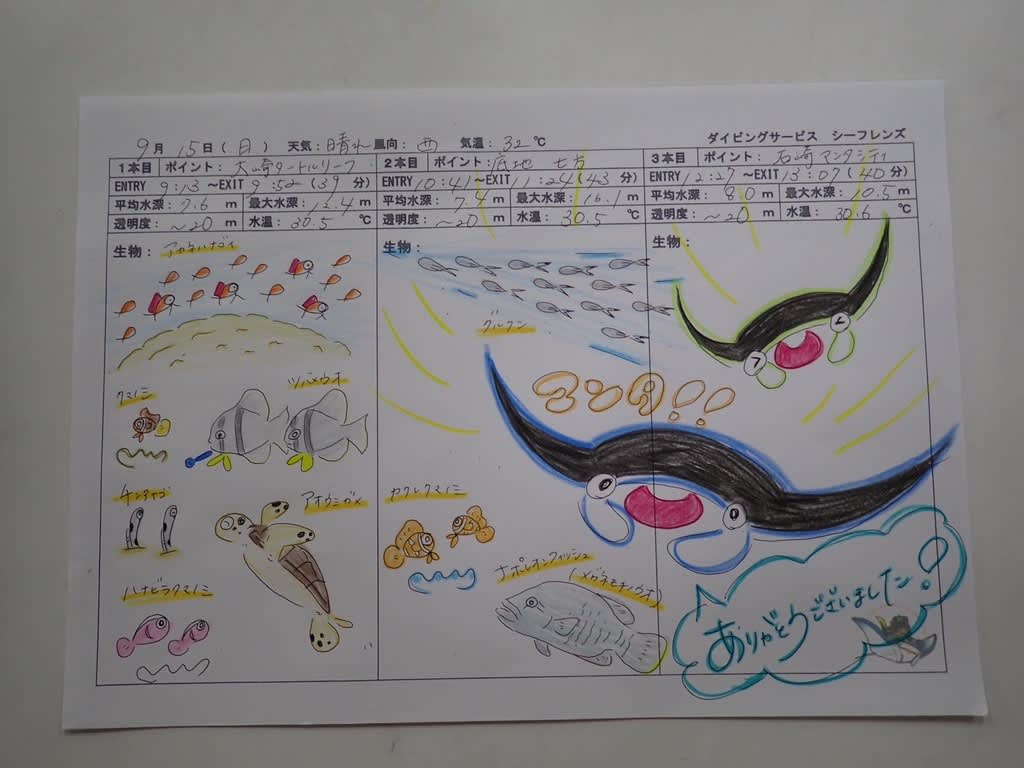 9月 15日(月) 天気:晴れ 風向:西 気温:32℃
ダイビングサービス シーフレンズ
1本目 ポイント:大崎タートルリーフ
ENTRY 9:13 ~EXIT 9:52 (39 分)
平均水深:7.6 m 最大水深:12.4 m
透明度:~20 m 水温:30.5 ℃
生物:
アカネハナゴイ
クマノミ
ツバメウオ
チンアナゴ
アオウミガメ
ハナビラクマノミ
2本目 ポイント:底地 七方
ENTRY 10:41 ~EXIT 11:24 (43 分)
平均水深:7.4 m 最大水深:16.1 m
透明度:~20 m 水温:30.5 ℃
生物:
グルクン
マンタ!!
カクレクマノミ
ナポレオンフィッシュ
(メガネモチノウオ)
3本目 ポイント:石崎マンタシティ
ENTRY 12:27 ~EXIT 13:07 (40 分)
平均水深:8.0 m 最大水深:10.5 m
透明度:~20 m 水温:30.6 ℃
生物:
ありがとうございました!